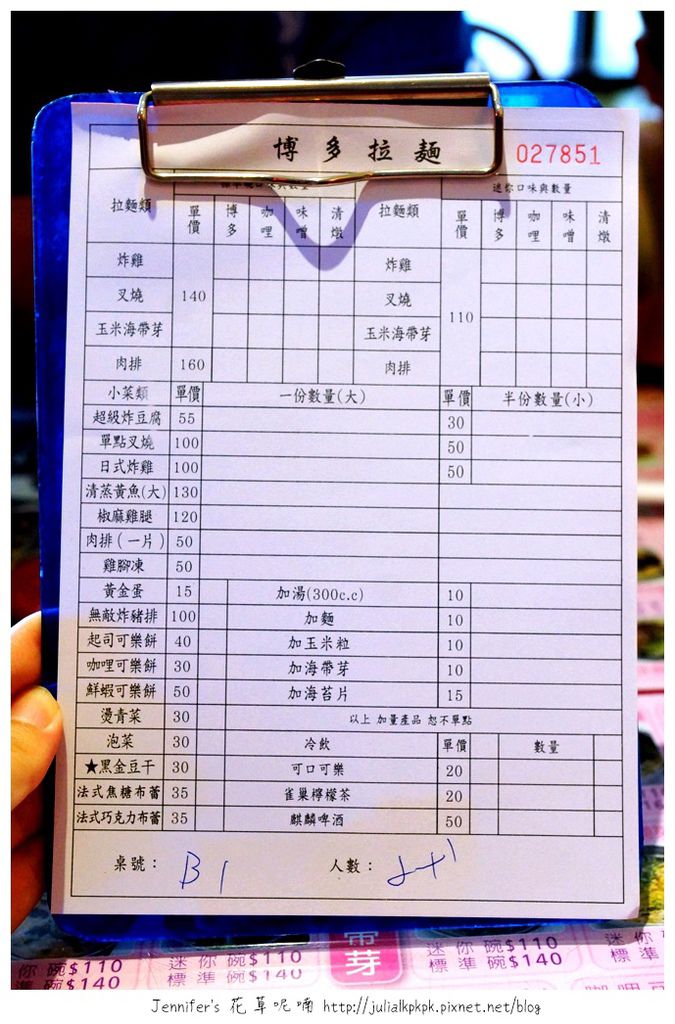 博多拉麵
027851
迷你口味與數量
拉麵類 單價 博多 咖哩 味噌 清燉 拉麵類 單價 博多 咖哩 味噌 清燉
炸雞 炸雞
叉燒 140 叉燒
110
玉米海帶芽 玉米海帶芽
肉排 160 肉排
小菜類 單價 一份數量(大) 單價 半份數量(小)
超級炸豆腐 55 30
單點叉燒 100 50
日式炸雞 100 50
清蒸黃魚(大) 130
椒麻雞腿 120
肉排(一片) 50
雞腳凍 50
黃金蛋 15 加湯(300c.c) 10
無敵炸豬排 100 加麵 10
起司可樂餅 40 加玉米粒 10
咖哩可樂餅 30 加海帶芽 10
鮮蝦可樂餅 50 加海苔片 15
燙青菜 30 以上 加量產品 恕不單點
泡菜 30 冷飲 單價 數量
★黑金豆干 30 可口可樂 20
法式焦糖布蕾 35 雀巢檸檬茶 20
法式巧克力布蕾 35 麒麟啤酒 50
桌號： B1 人數： 2+1
帶芽
你碗$110 迷你碗$110 迷你
標準碗$140 標準碗$140 標
Jennifer's 花草呢喃 http://julialkpkpk.pixnet.net/blog